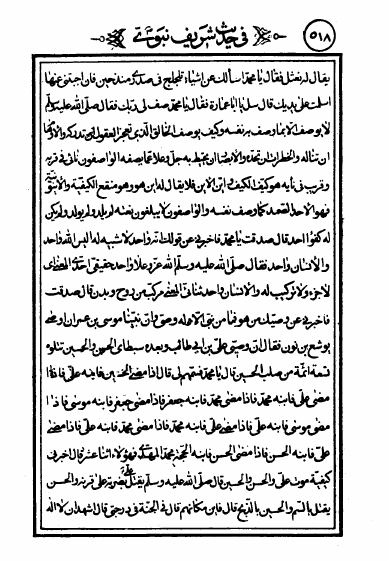 في حديث شريف نبوي ٥١٨
يقال له نعثل فقال يا محمد اسألك عن اشياء تلجلج في صدري منذ حين فان اجبتني عنها
اسلمت على يديك قال سل يا ابا عمارة فقال يا محمد صف لي ربك فقال صلى الله عليه وسلم
لا يوصف الا بما وصف به نفسه وكيف يوصف الخالق الذي تعجز العقول ان تدركه والاوهام
ان تناله والخطرات ان تحده والابصار ان تحيط به جل وعلا عما يصفه الواصفون نائ في قربه
وقريب في نأيه هو كيف الكيف واين الاين فلا يقال له اين هو وهو منقطع الكيفية والاينونية
فهو الاحد الصمد كما وصف نفسه والواصفون لا يبلغون نعته لم يلد ولم يولد ولم يكن
له كفوا احد قال صدقت يا محمد فاخبرني عن قولك انه واحد لا شبيه له اليس الله واحد
والانسان واحد فقال صلى الله عليه وسلم الله عز وعلا واحد حقيقي احدي المعنى اي
لا جزء ولا تركيب له والانسان واحد ثنائي المعنى مركب من روح وبدن قال صدقت
فاخبرني عن وصيك من هو فما من نبي الا وله وصي وان نبينا موسى بن عمران اوصى
يوشع بن نون فقال ان وصيي علي بن ابي طالب وبعده سبطاي الحسن والحسين تتلوه
تسعة ائمة من صلب الحسين قال يا محمد فسمهم لي قال اذا مضى الحسين فابنه علي فاذا
مضى علي فابنه محمد فاذا مضى محمد فابنه جعفر فاذا مضى جعفر فابنه موسى فاذا
مضى موسى فابنه علي فاذا مضى علي فابنه محمد فاذا مضى محمد فابنه علي فاذا مضى
علي فابنه الحسن فاذا مضى الحسن فابنه الحجة محمد المهدي فهؤلاء اثنا عشر قال اخبرني
كيفية موت علي والحسن والحسين قال صلى الله عليه وسلم يقتل علي بضربة على قرنه والحسن
يقتل بالسم والحسين بالذبح قال فاين مكانهم قال في الجنة في درجتي قال اشهد ان لا اله